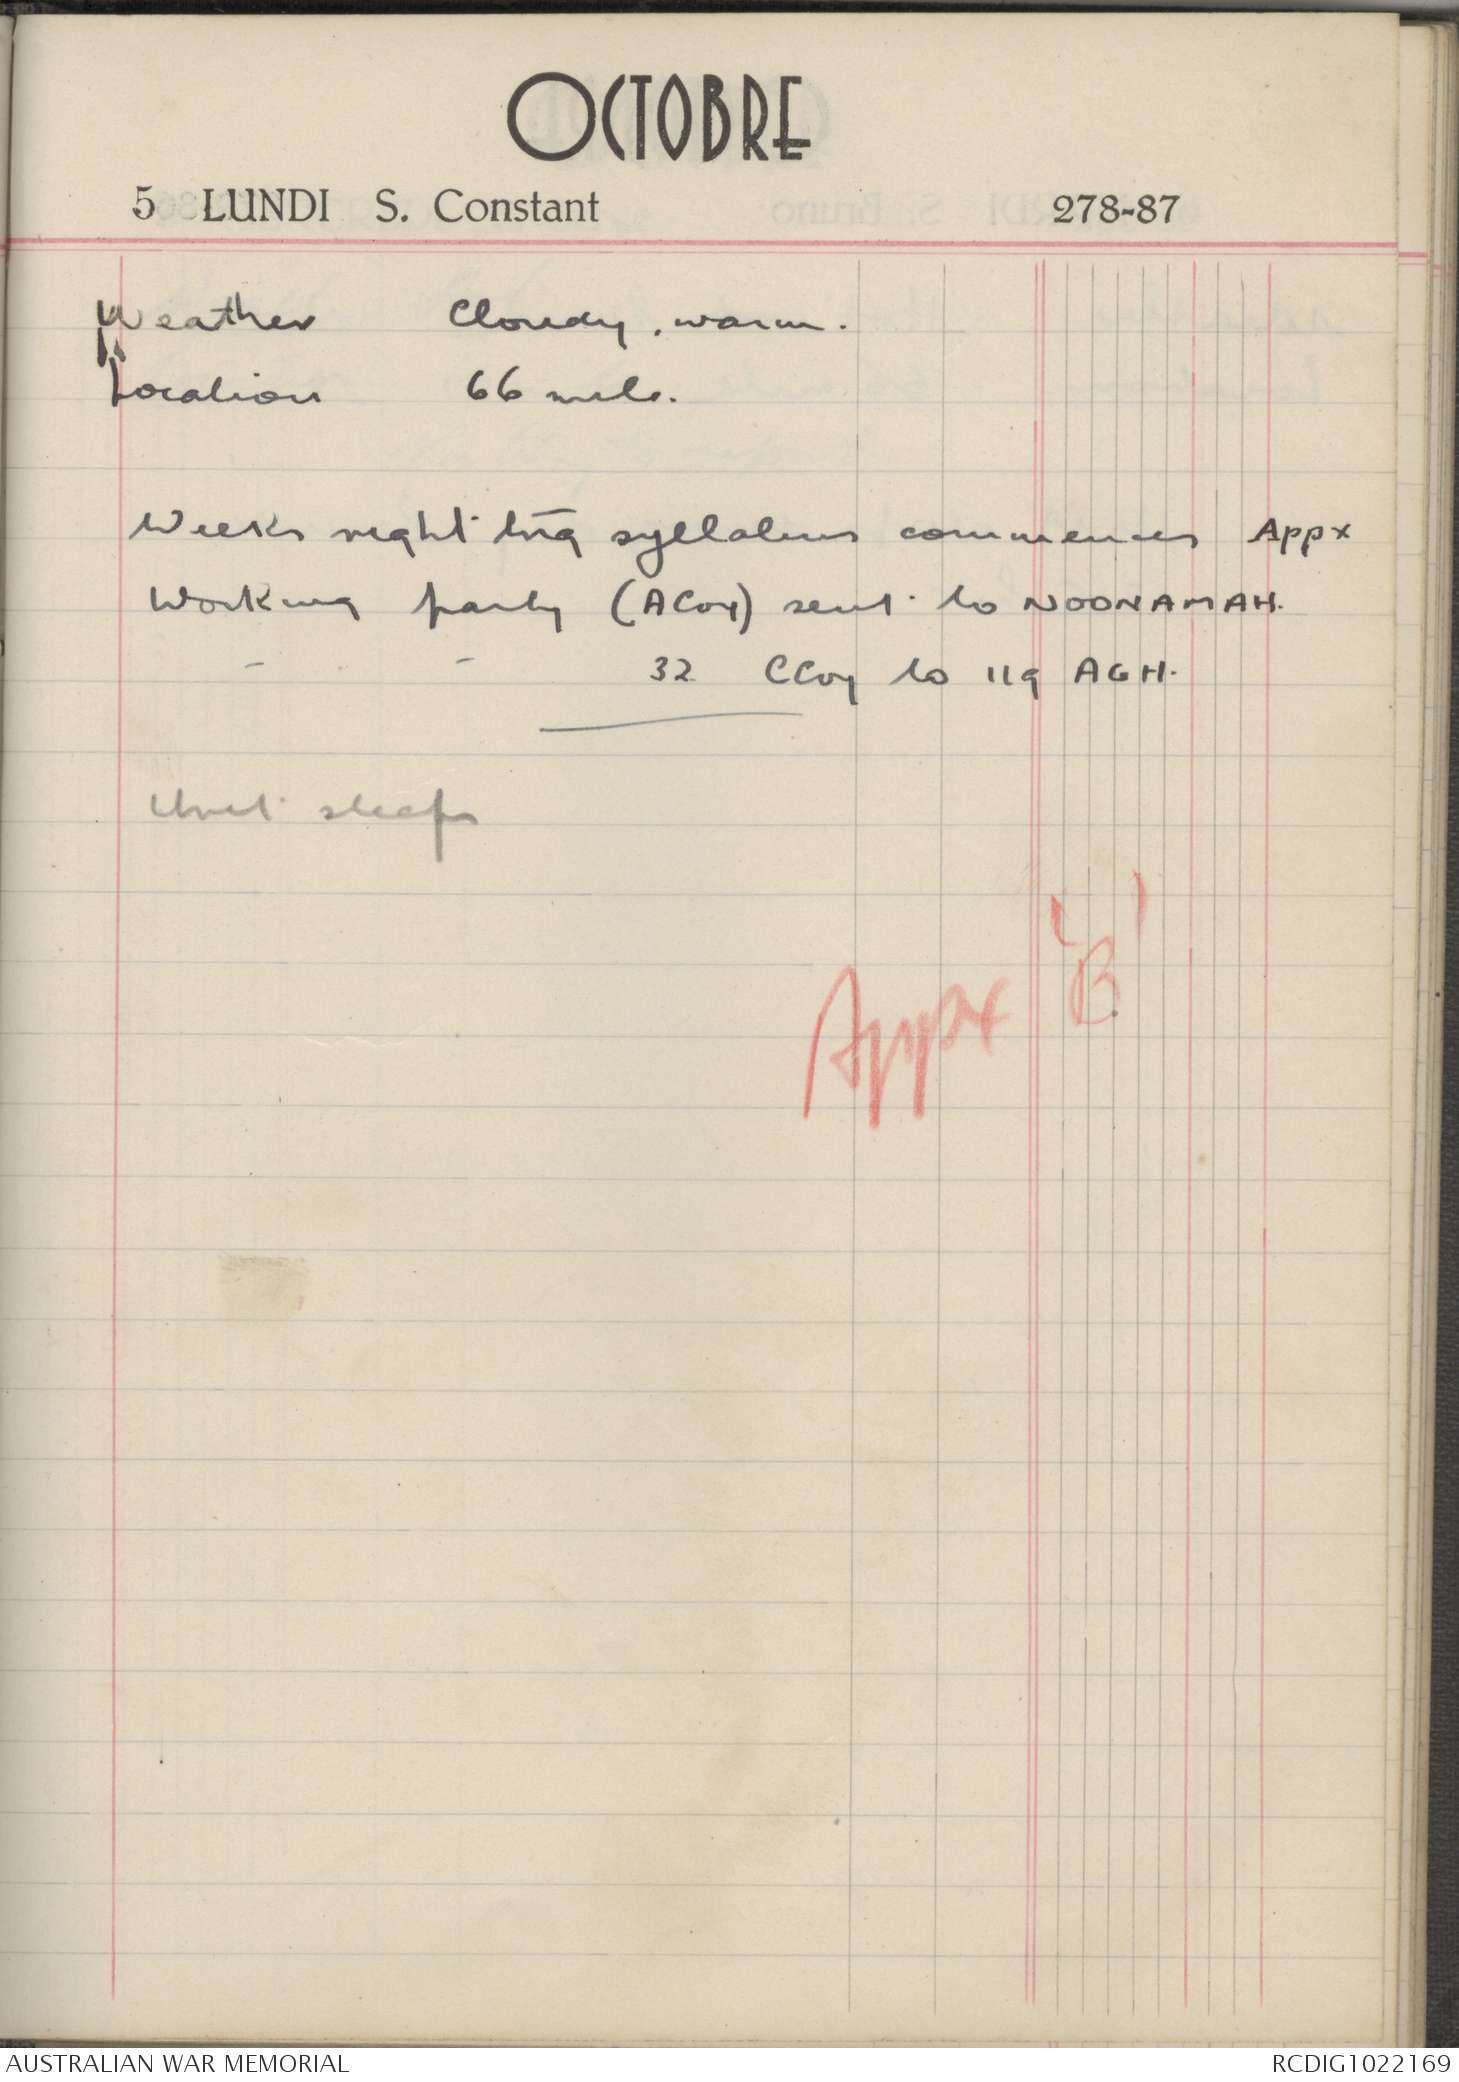 OCTOBRE
5 LUNDI S. Constant 278-87
Weather Cloudy, warm.
Location 66 mile.
Weeks night trg syllabus commences Appx
Working party (A Coy) sent to NOONAMAH.
- - 32 C Coy to 119 AGH.
Unit sleeps
Appx 'B'
AUSTRALIAN WAR MEMORIAL RCDIG1022169